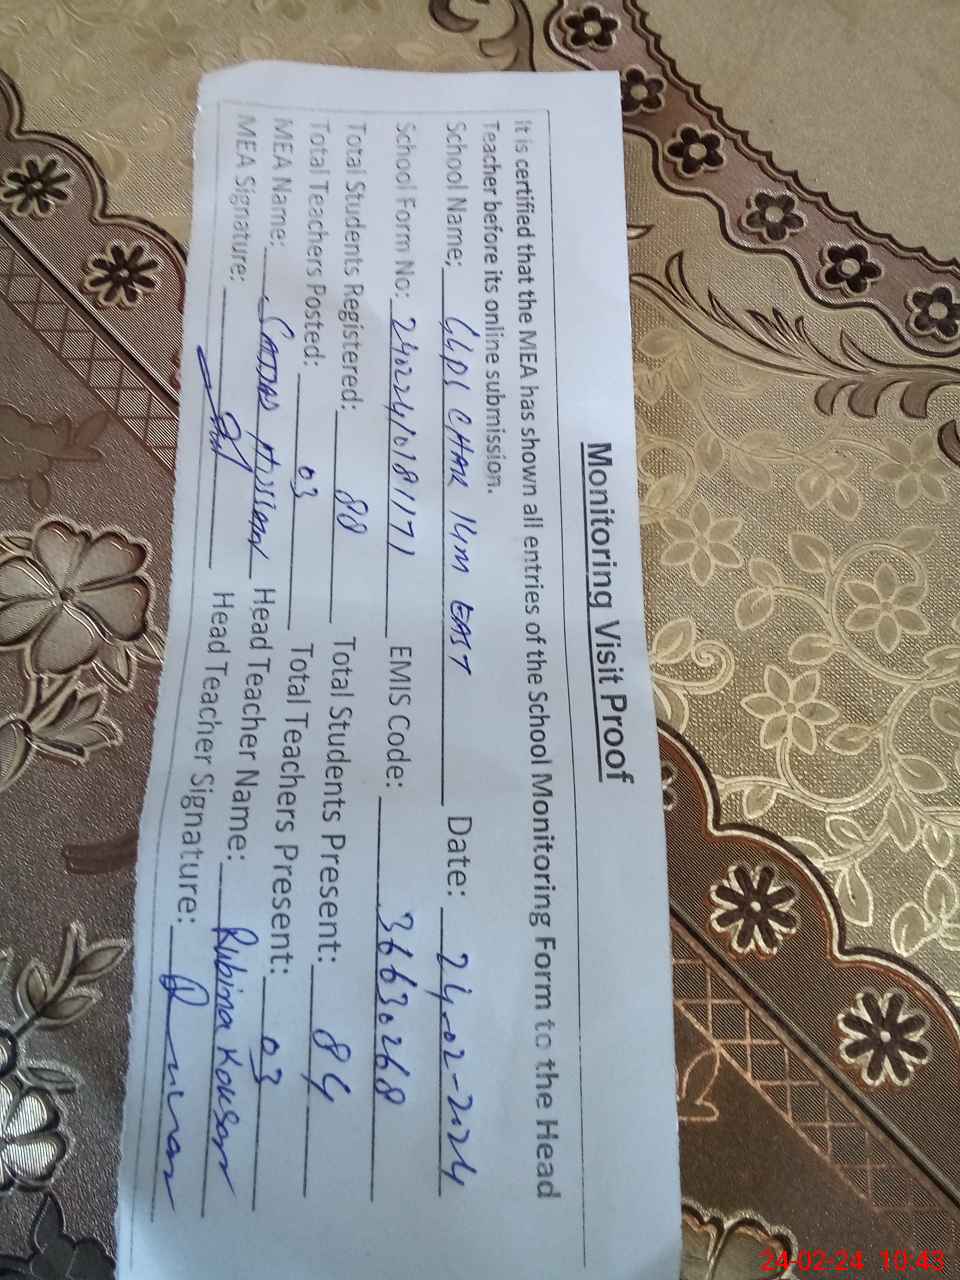 Monitoring Visit Proof
It is certified that the MEA has shown all entries of the School Monitoring Form to the Head
Teacher before its online submission.
School Name: GGPS CHAK 14M EAST Date: 24-02-2024
School Form No: 2402240181171 EMIS Code: 36630268
Total Students Registered: 88 Total Students Present: 84
Total Teachers Posted: 03 Total Teachers Present: 03
MEA Name: Head Teacher Name: Rubina Kousar
MEA Signature: Head Teacher Signature:
24-02-24 10:43